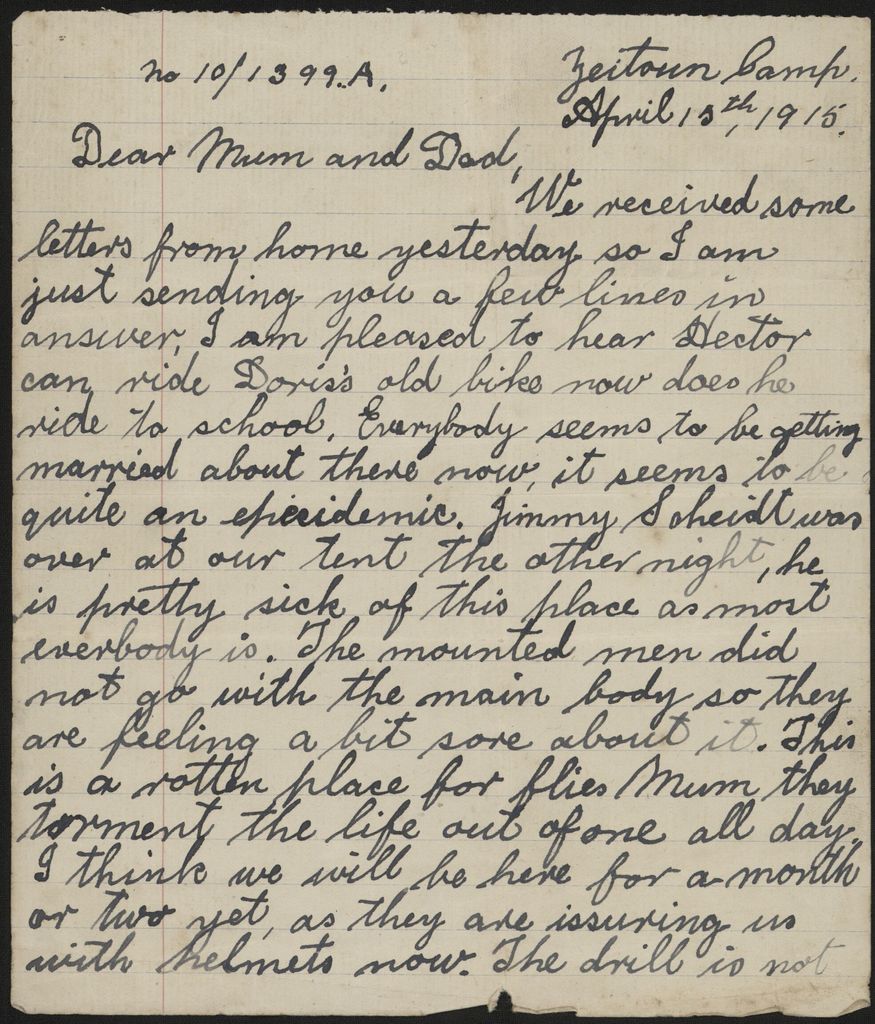 no 10/1399.A.
Zeitoun Camp.
April 13th, 1915.
Dear Mum and Dad,
We received some
letters from home yesterday so I am
just sending you a few lines in
answer, I am pleased to hear Hector
can ride Doris's old bike now does he
ride to school. Everybody seems to be getting
married about there now, it seems to be
quite an epicidemic. Jimmy Scheidt was
over at our tent the other night, he
is pretty sick of this place as most
everbody is. The mounted men did
not go with the main body so they
are feeling a bit sore about it. This
is a rotten place for flies Mum they
torment the life out of one all day.
I think we will be here for a month
or two yet, as they are issuring us
with helmets now. The drill is not